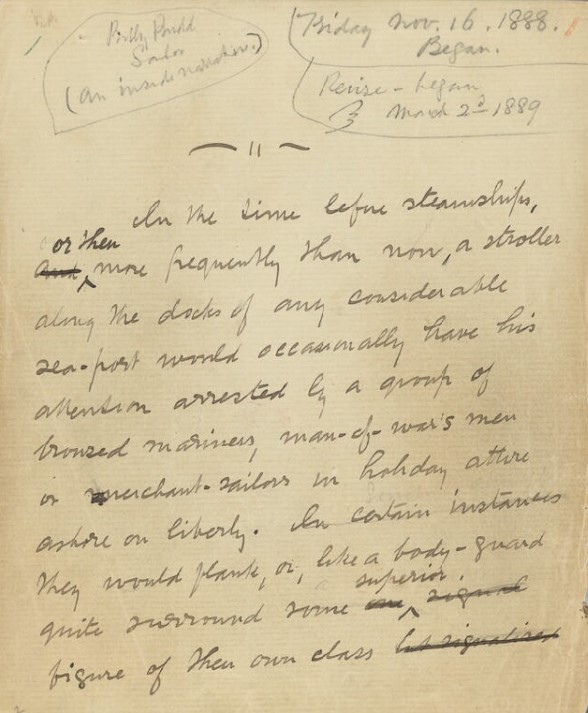 Billy Budd
Sailor
(An inside narrative.)
Friday Nov. 16. 1888.
Began.
Revise - began
March 2d 1889
In the time before steamships,
or then
and more frequently than now, a stroller
along the docks of any considerable
sea-port would occasionally have his
attention arrested by a group of
bronzed mariners, man-of-war's men
or merchant-sailors in holiday attire
ashore on liberty. In certain instances
they would flank, or, like a body-guard
superior
quite surround some one signal
figure of their own class but signalized